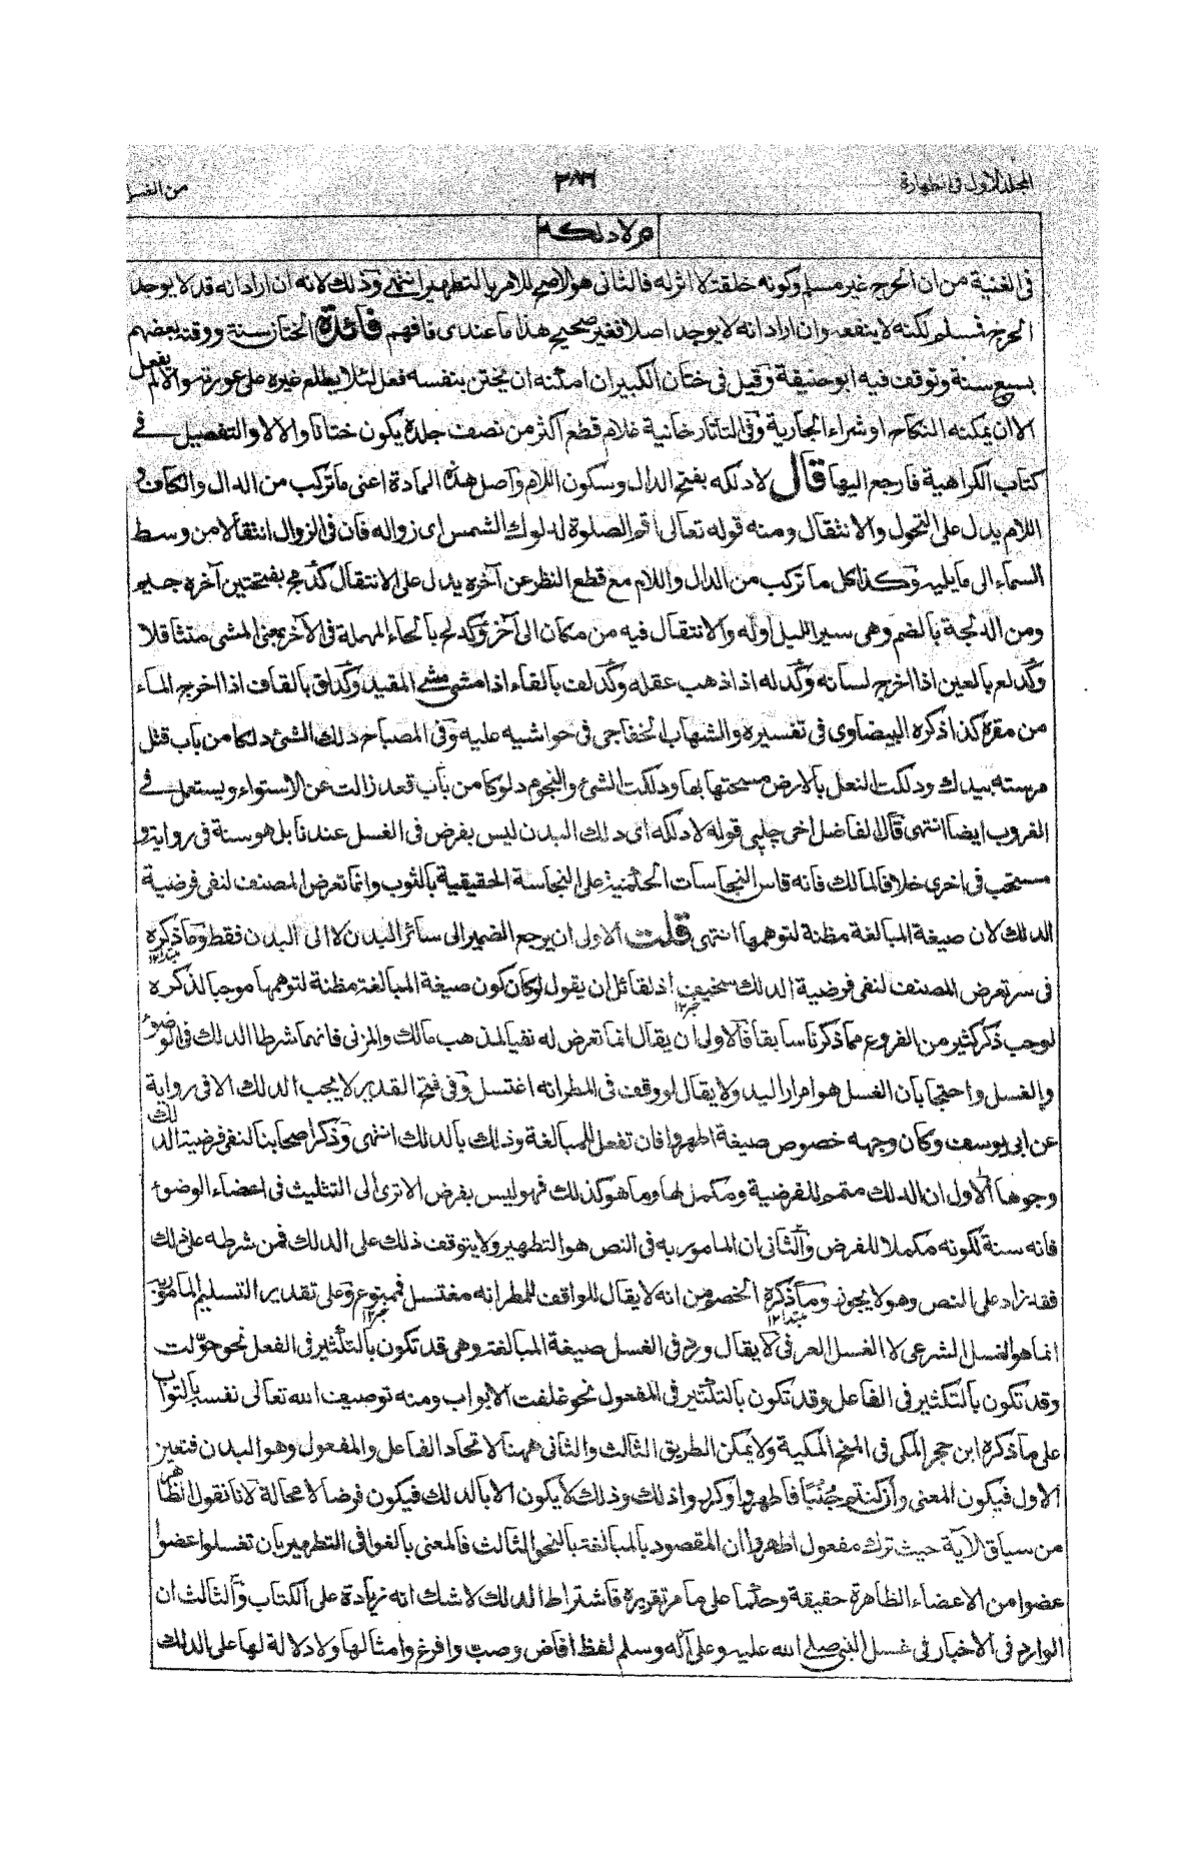 المجلد الاول فی الطهارة
٣٨٦
من الغسل
م لا دلكه
فی الغنیة من ان الحرج غیر مسلم وكونه خلقة لا اثر له فالثانی هو الاصح للامر بالتطهیر انتهی وذلك لانه ان اراد انه قد لا یوجد
الحرج فمسلم لكنه لا ینفعه وان اراد انه لا یوجد اصلا فغیر صحیح هذا ما عندی فافهم فائدة الختان سنة ووقته بعضهم
بسبع سنة وتوقف فیه ابو حنیفة وقیل فی ختان الكبیر ان امكنه ان یختن بنفسه فعل لئلا یطلع غیره علی عورته والا لم یفعل
الا ان یمكنه النكاح او شراء الجاریة وفی التاتارخانیة غلام قطع اكثر من نصف جلده یكون ختانا والا لا والتفصیل فی
كتاب الكراهیة فارجع الیها قال لا دلكه بفتح الدال وسكون اللام واصل هذه المادة اعنی ما تركب من الدال والكاف و
اللام یدل علی التحول والانتقال ومنه قوله تعالی اقم الصلوة لدلوك الشمس ای زواله فان فی الزوال انتقالا من وسط
السماء الی ما یلیه وكذا كل ما تركب من الدال واللام مع قطع النظر عن آخره یدل علی الانتقال كدلج بفتحتین آخره جیم
ومن الدلجة بالضم وهی سیر اللیل اوله والانتقال فیه من مكان الی آخر وكدلح بالحاء المهملة فی الآخر بمعنی المشی متثاقلا
وكدلع بالعین اذا اخرج لسانه وكدله اذا ذهب عقله وكدلف بالفاء اذا مشی مشی المقید وكدلق بالقاف اذا اخرج الماء
من مقره كذا ذكره البیضاوی فی تفسیره والشهاب الخفاجی فی حواشیه علیه وفی المصباح دلك الشئ دلكا من باب قتل
مرسته بیدك ودلكت النعل بالارض مسحتها بها ودلكت الشئ والنجوم دلوكا من باب قعد زالت عن الاستواء ویستعمل فی
الغروب ایضا انتهی قال الفاضل اخی چلپی قوله لا دلكه ای دلك البدن لیس بفرض فی الغسل عندنا بل هو سنة فی روایة و
مستحب فی اخری خلافا لمالك فانه قاس النجاسات الحكمیة علی النجاسة الحقیقیة بالثوب وانما تعرض المصنف لنفی فرضیة
الدلك لان صیغة المبالغة مظنة لتوهمها انتهی قلت الاولی ان یرجع الضمیر الی سائر البدن لا الی البدن فقط وما ذكره
مبتدأ ١٢
فی سر تعرض المصنف لنفی فرضیة الدلك سخیف اذ لقائل ان یقول لو كان كون صیغة المبالغة مظنة لتوهمها موجبا لذكره
خبر ١٢
لوجب ذكر كثیر من الفروع مما ذكرنا سابقا فالاولی ان یقال انما تعرض له نفیا لمذهب مالك والمزنی فانهما شرطا الدلك فی الوضوء
والغسل واحتجا بان الغسل هو امرار الید ولا یقال لو وقف فی المطر انه اغتسل وفی فتح القدیر لا یجب الدلك الا فی روایة
عن ابی یوسف وكان وجهه خصوص صیغة اطهروا فان تفعل للمبالغة وذلك بالدلك انتهی وذكر اصحابنا لنفی فرضیة الدلك
وجوها الاول ان الدلك متمم للفرضیة ومكمل لها وما هو كذلك فهو لیس بفرض الا تری الی التثلیث فی اعضاء الوضوء
فانه سنة لكونه مكملا للفرض والثانی ان المامور به فی النص هو التطهیر ولا یتوقف ذلك علی الدلك فمن شرطه علی ذلك
فقد زاد علی النص وهو لا یجوز وما ذكره الخصوم من انه لا یقال للواقف للمطر انه مغتسل فممنوع وعلی تقدیر التسلیم المامور به
مبتدأ ١٢
خبر ١٢
انما هو الغسل الشرعی لا الغسل العرفی لا یقال ورد فی الغسل صیغة المبالغة وهی قد تكون بالتكثیر فی الفعل نحو حولت
وقد تكون بالتكثیر فی الفاعل وقد تكون بالتكثیر فی المفعول نحو غلقت الابواب ومنه توصیف الله تعالی نفسه بالتواب
علی ما ذكره ابن حجر المكی فی المنح المكیة ولا یمكن الطریق الثالث والثانی ههنا لاتحاد الفاعل والمفعول وهو البدن فتعین
الاول فیكون المعنی وان كنتم جنبا فاطهروا وذلك لا یكون الا بالدلك فیكون فرضا لا محالة لانا نقول الظاهر
من سیاق الآیة حیث ترك مفعول اطهروا ان المقصود بالمبالغة بالنحو الثالث فالمعنی بالغوا فی التطهیر بان تغسلوا عضوا
عضوا من الاعضاء الظاهرة حقیقة وحكما علی ما مر تقریره فاشتراط الدلك لا شك انه زیادة علی الكتاب والثالث ان
الوارد فی الاخبار فی غسل النبی صلی الله علیه وعلی آله وسلم لفظ افاض وصب وافرغ وامثالها ولا دلالة لها علی الدلك